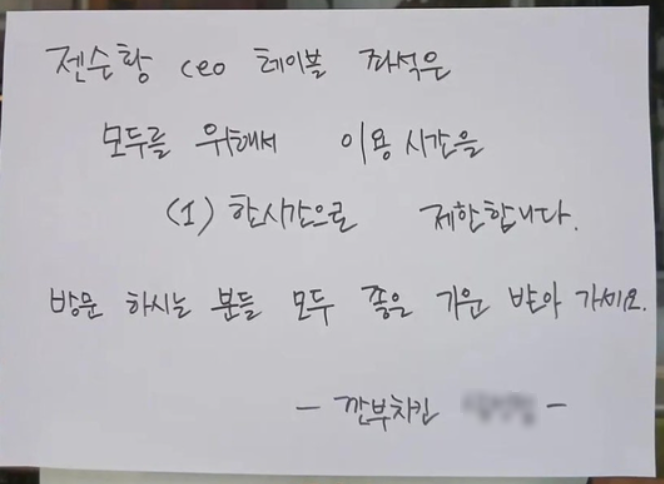 젠슨황 ceo 테이블 좌석은
모두를 위해서 이용 시간을
(1) 한시간으로 제한합니다.
방문 하시는 분들 모두 좋은 기운 받아 가세요.
- 깐부치킨 -